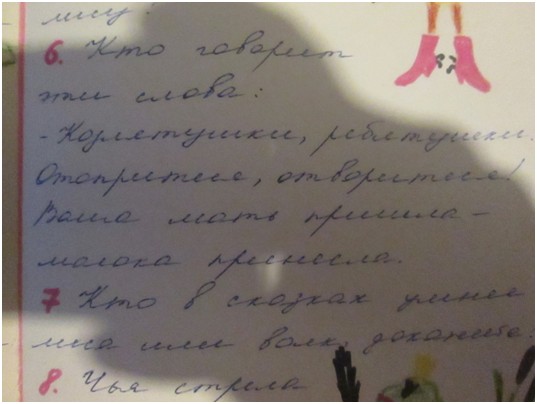 лису?
6. Кто говорит
эти слова:
- Козлятушки, ребятушки.
Отопритесь, отворитесь!
Ваша мать пришла -
молока принесла.
7 Кто в сказках умнее
- лиса или волк, докажите.
8. Чья стрела